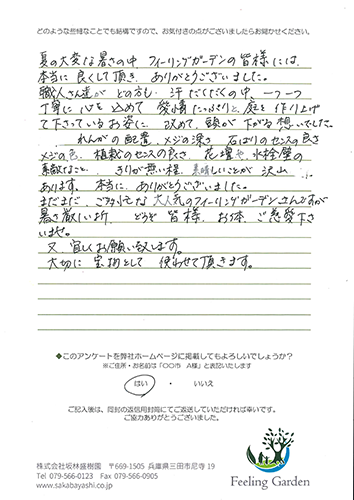 どのような些細なことでも結構ですので、お気付きの点がございましたらお聞かせください。
夏の大変な暑さの中、フィーリングガーデンの皆様には、
本当に良くして頂き、ありがとうございました。
職人さん達が どの方も 汗だくだくの中、一つ一つ
丁寧に 心を込めて 愛情たっぷりと、庭を作り上げ
て下さっているお姿に 改めて、頭が下がる想いでした。
れんがの配置、メジの深さ 石はりのセンスの良さ
メジの色、植栽のセンスの良さ 花壇や、水栓壁の
素敵なこと、 きりが無い程、素晴しいことが 沢山
あります。 本当に、ありがとうございました。
まだまだ、ご多忙な 大人気のフィーリングガーデンさんですが
暑さ厳しい折、 どうぞ 皆様、お身体、ご慈愛下さ
いませ。
又、宜しくお願い致します。
大切に 宝物として 使わせて頂きます。
◆このアンケートを弊社ホームページに掲載してもよろしいでしょうか?
※ご住所・お名前は「○○市 A様」と表記いたします
はい ・ いいえ
ご記入後は、同封の返信用封筒にてご返送していただければ幸いです。
ご協力ありがとうございました。
株式会社坂林盛樹園 〒669-1505 兵庫県三田市尼寺 19
Tel 079-566-0123 Fax 079-566-0905
www.sakabayashi.co.jp
Feeling Garden